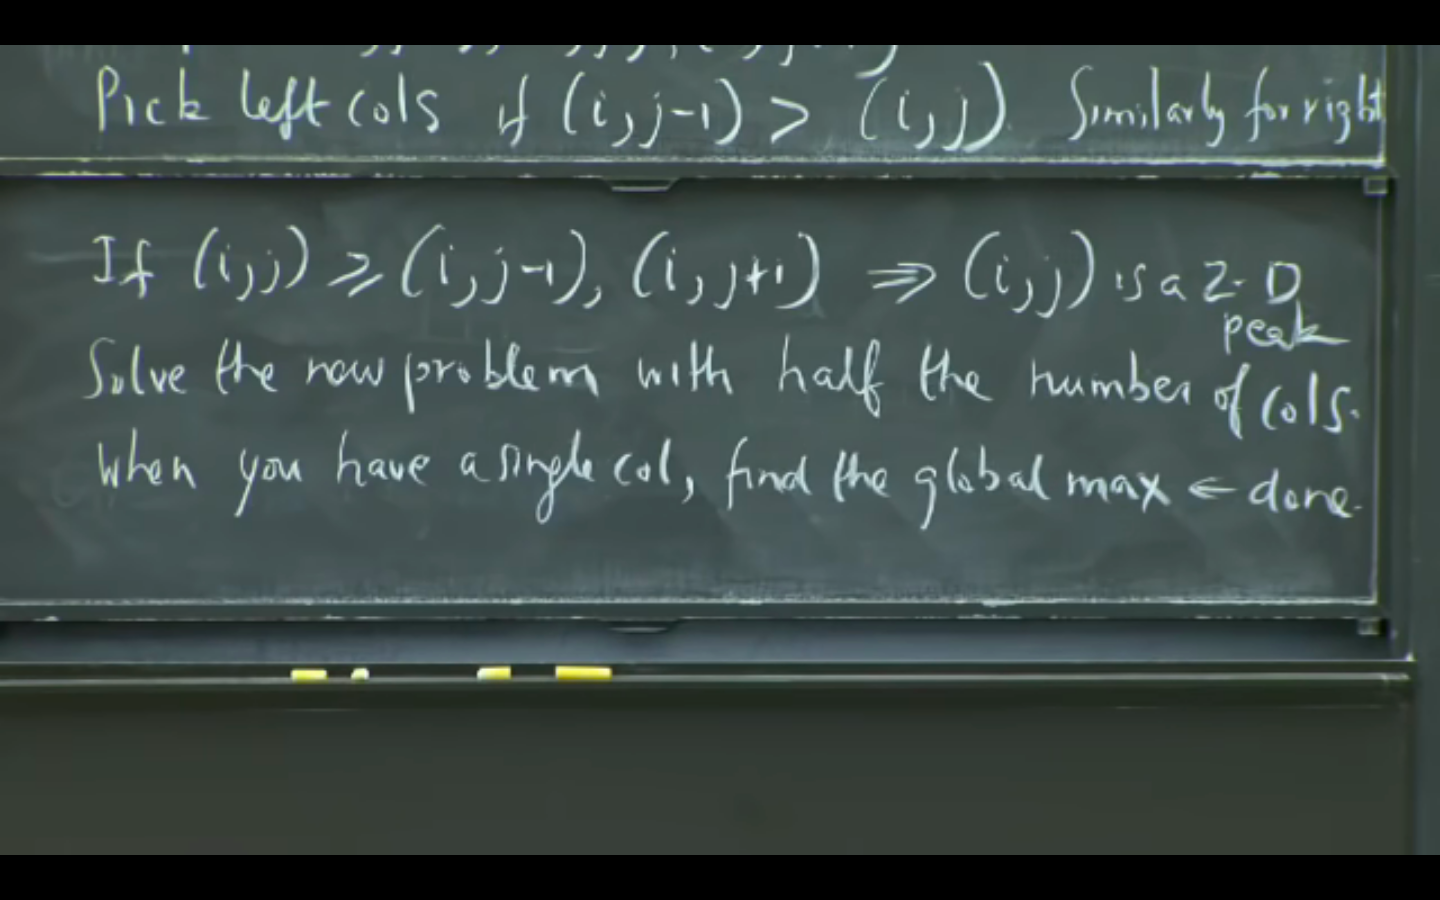 Pick left cols if (i,j-1) > (i,j) Similarly for right
If (i,j) ≥ (i,j-1), (i,j+1) ⇒ (i,j) is a 2-D
peak
Solve the new problem with half the number of cols.
When you have a single col, find the global max ← done.